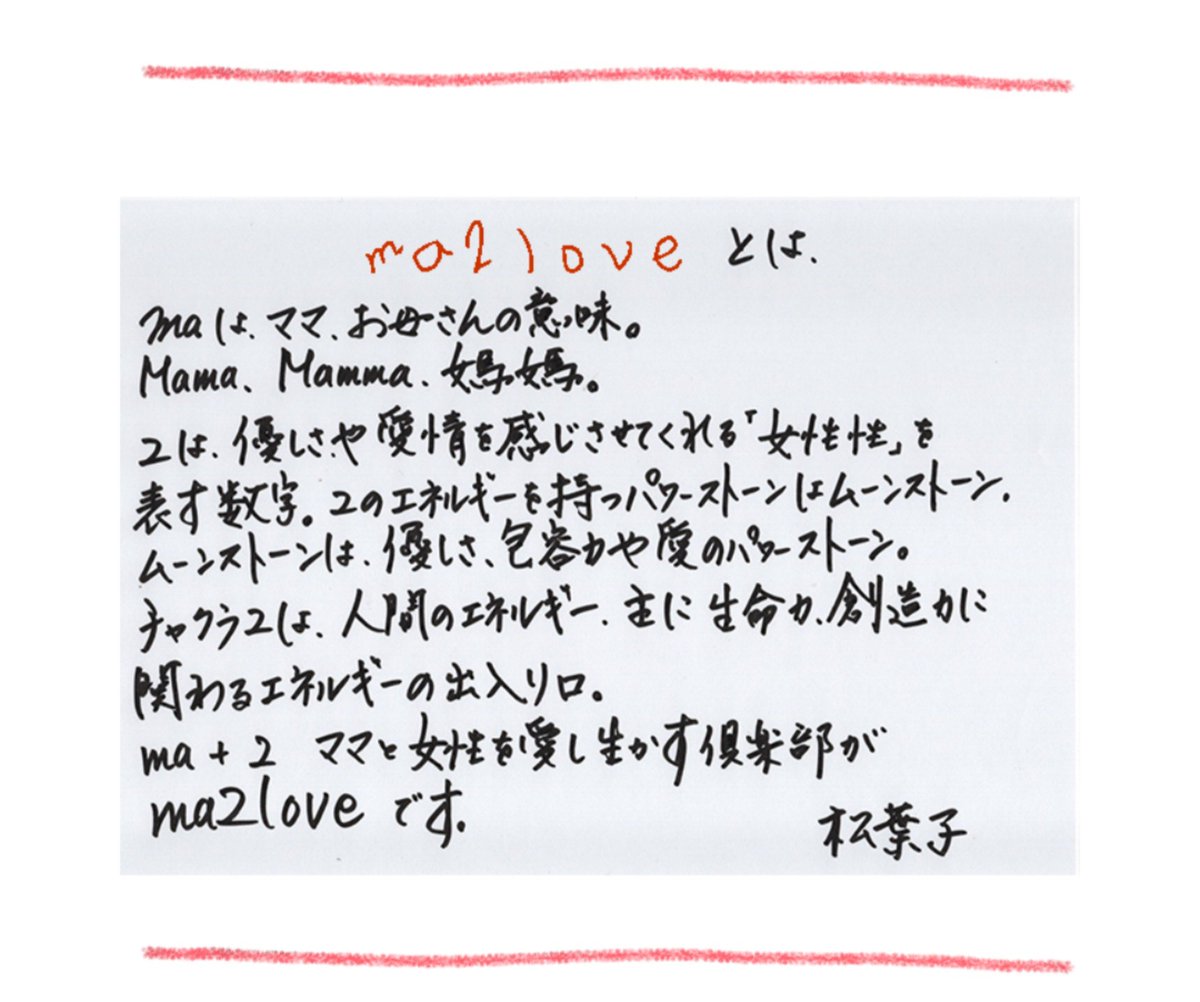 ma2love とは、
maは、ママ、お母さんの意味。
Mama、Mamma、媽媽。
2は、優しさや愛情を感じさせてくれる「女性性」を
表す数字。2のエネルギーを持つパワーストーンはムーンストーン。
ムーンストーンは、優しさ、包容力や愛のパワーストーン。
チャクラ2は、人間のエネルギー、主に生命力、創造力に
関わるエネルギーの出入り口。
ma + 2 ママと女性を愛し生かす倶楽部が
ma2love です。
松葉子